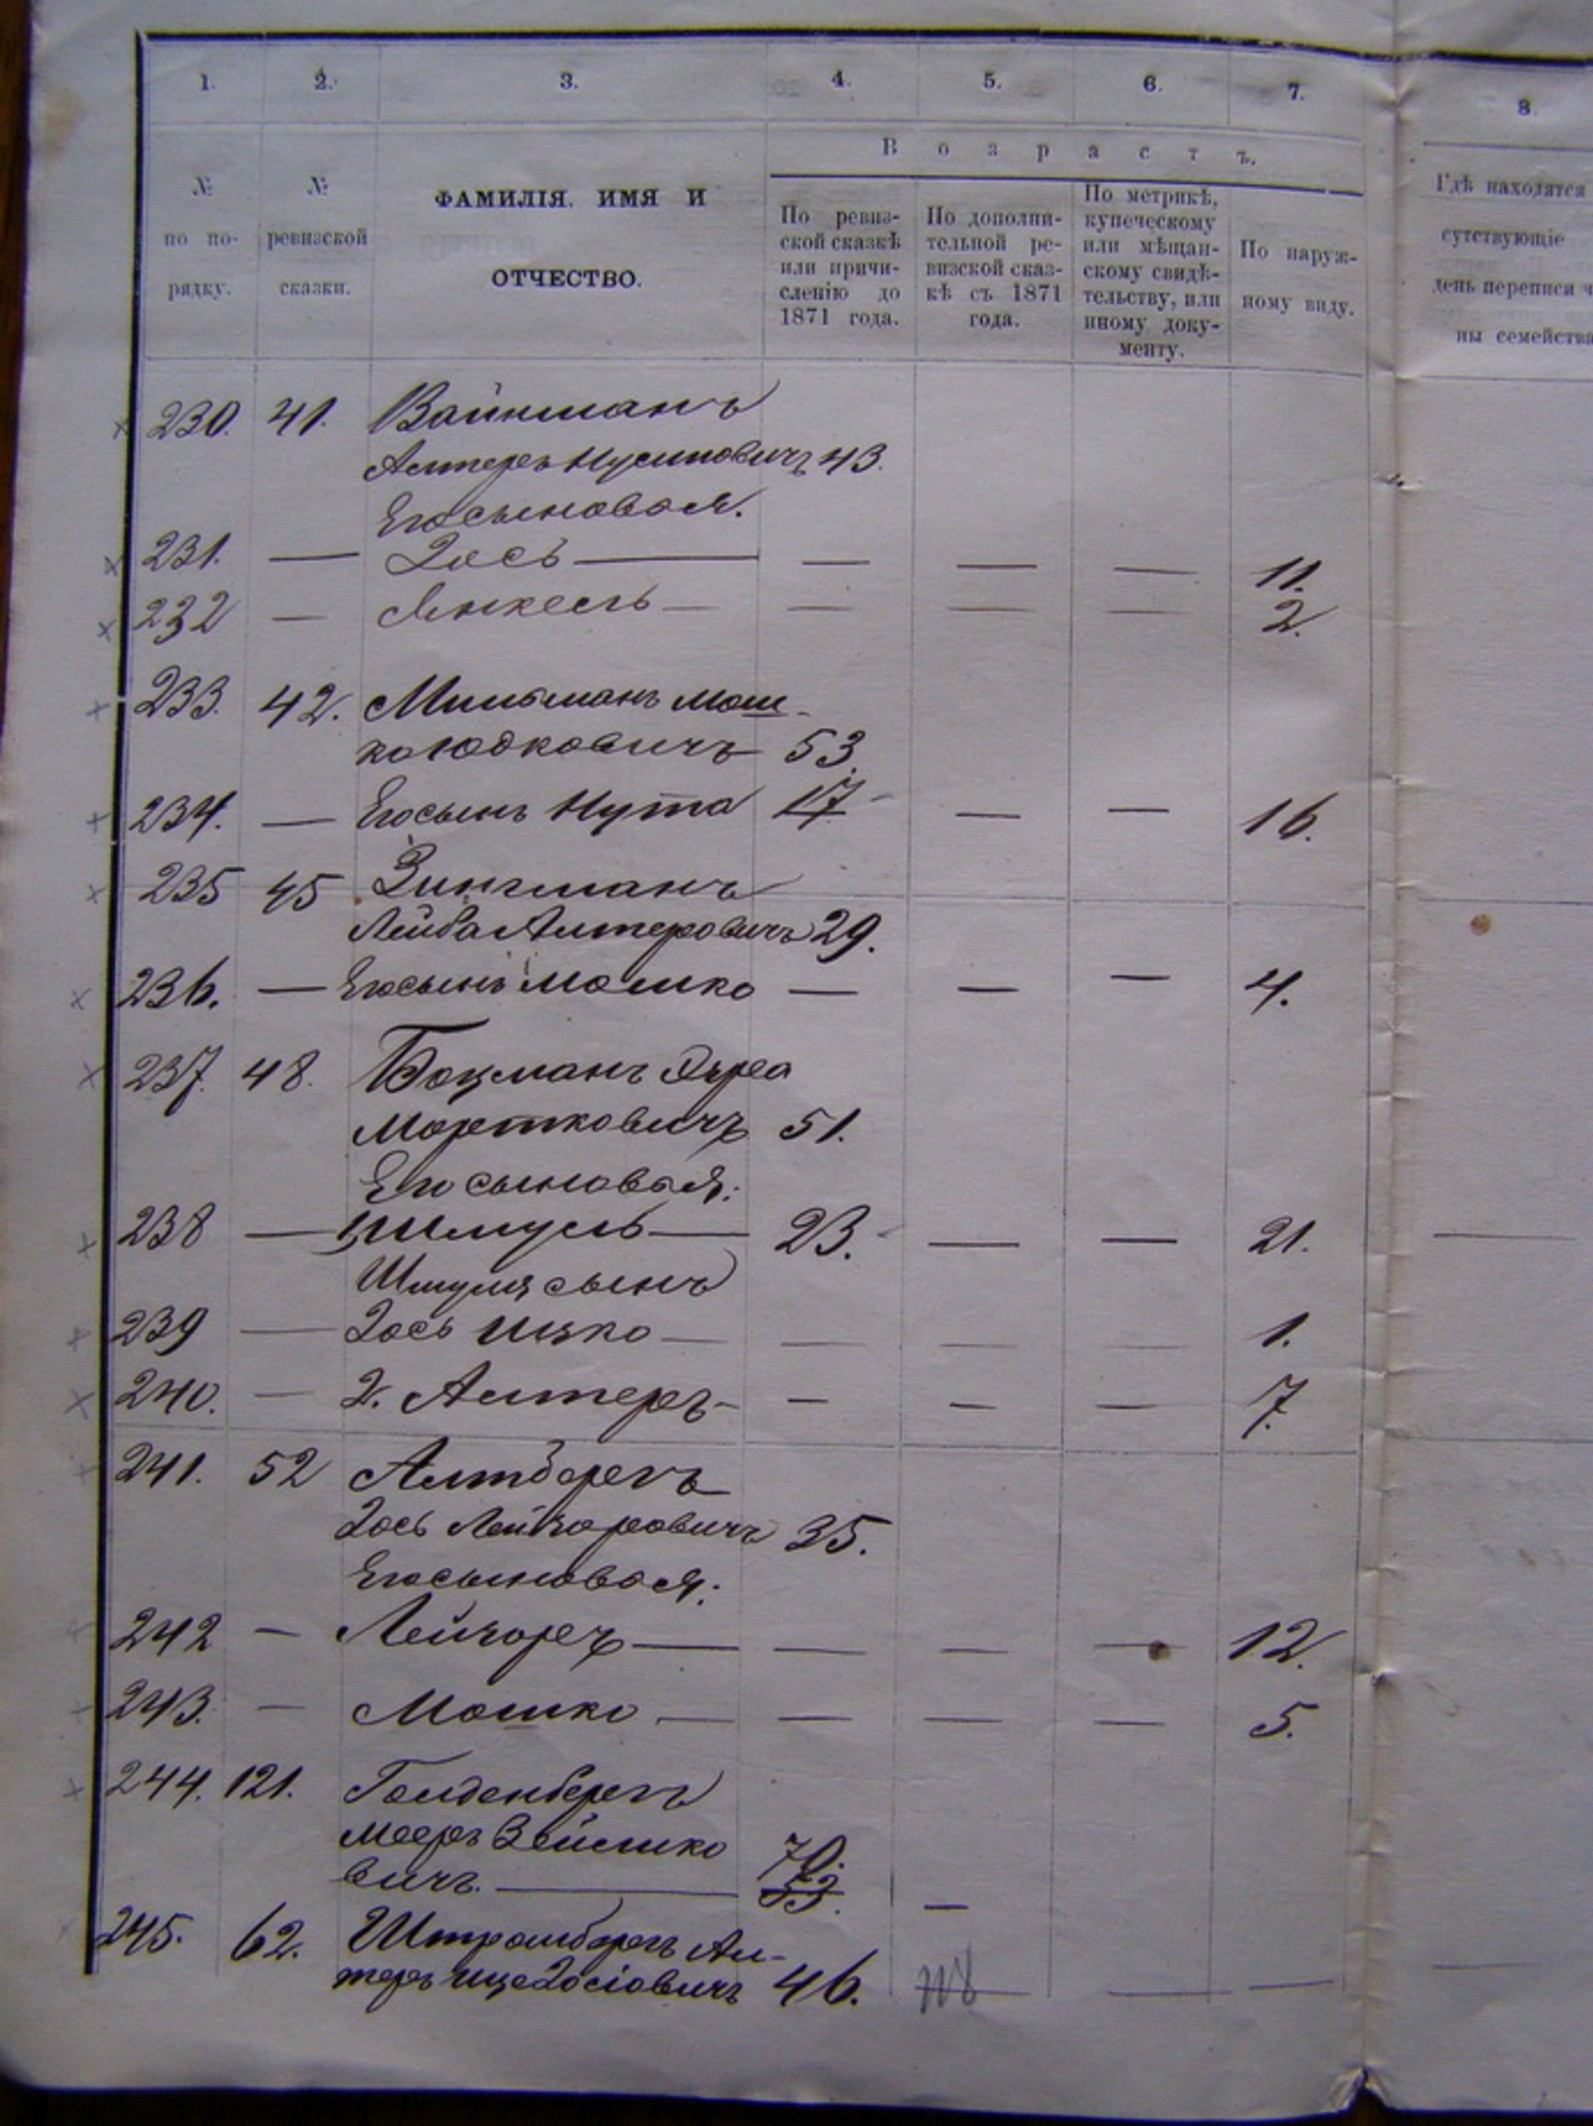 1. 2. 3. 4. 5. 6. 7. 8.
В о з р а с т ъ.
№ по по-рядку.
№ ревизской сказки.
ФАМИЛІЯ, ИМЯ И
ОТЧЕСТВО.
По ревиз-
ской сказкѣ
или причи-
сленію до
1871 года.
По дополни-
тельной ре-
визской сказ-
кѣ съ 1871
года.
По метрикѣ,
купеческому
или мѣщан-
скому свидѣ-
тельству, или
иному доку-
менту.
По наруж-
ному виду.
Гдѣ находятся
сутствующіе
день переписи ч
ны семейства
230. 41. Вайнманъ
Алтеръ Нусиновичъ 43.
Его сыновья.
231. — Зось — — — — 11.
232 — Янкель — — — — 2.
233. 42. Мильманъ Мош-
ко Юдковичъ 53.
234. — Его сынъ Нута 17 — — 16.
235 45 Зингманъ
Лейба Алтеровичъ 29.
236. — Его сынъ Мошко — — — 4.
237. 48. Боцманъ
Мортковичъ 51.
Его сыновья:
238 — 1, Шмуль — 23. — — 21.
Шмуля сынъ
239 Зось Ицко — — — — 1.
240. — 2. Алтеръ — — — — 7.
241. 52 Алтбергъ
Зось Лейзоровичъ 35.
Его сыновья:
242 — Лейзоръ — — — — 12.
243. — Мошко — — — — 5.
244. 121. Голденбергъ
Мееръ Зейлико
вичъ. — 70. 53. —
245. 62. Штромбергъ Ал-
теръ Ице Зосіовичъ 46. — —